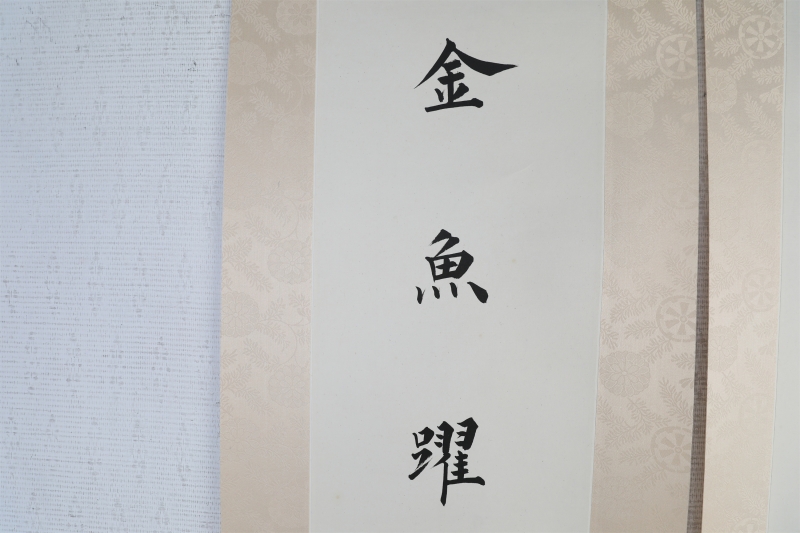 金魚躍